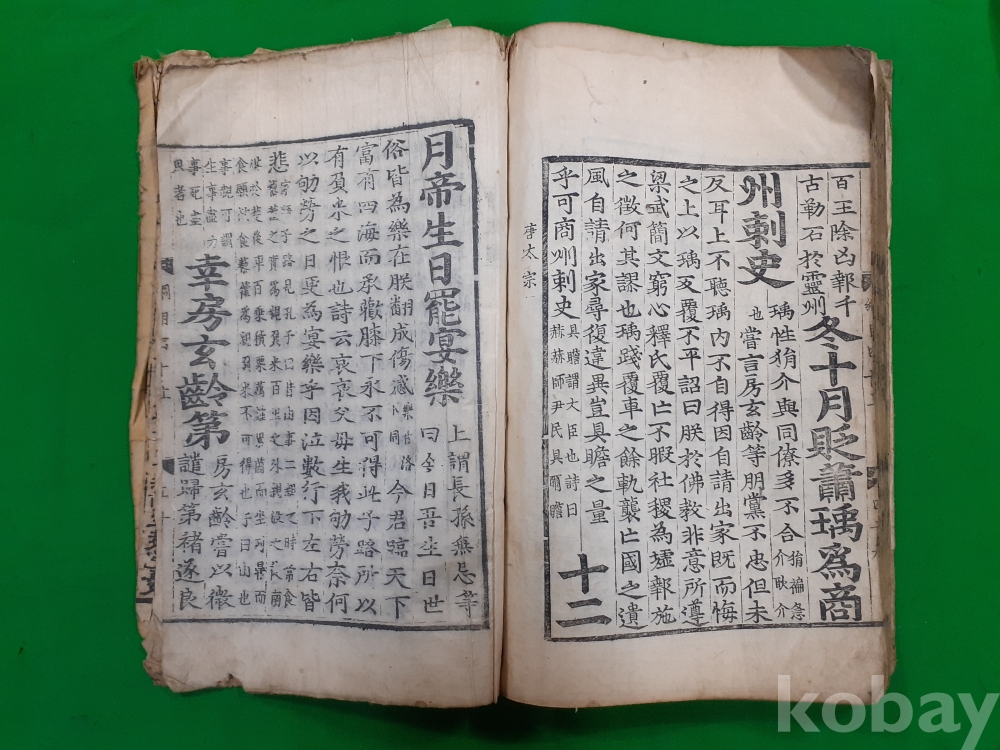 百王除凶報千
古勒石於靈州
冬十月貶蕭瑀為商
瑀性狷介與同僚多不合
狷褊急
介耿介
州刺史
也
嘗言房玄齡等朋黨不忠但未
反耳上不聽瑀內不自得因自請出家既而悔
之上以瑀反覆不平詔曰朕於佛教非意所遵
梁武簡文窮心釋氏覆亡不暇社稷為墟報施
之徵何其謬也瑀踐覆車之餘軌襲亡國之遺
風自請出家尋復違異豈具瞻之量
十二
乎可商州刺史
具瞻謂大臣也詩曰
赫赫師尹民具爾瞻
唐太宗
月帝生日罷宴樂
上謂長孫無忌等
曰今日吾生日世
俗皆為樂在朕翻成傷感
今君臨天下
富有四海而承歡膝下永不可得此子路所以
有負米之恨也詩云哀哀父母生我劬勞奈何
以劬勞之日更為宴樂乎因泣數行下左右皆
悲
幸房玄齡第
房玄齡嘗以微
譴歸第褚遂良
kobay